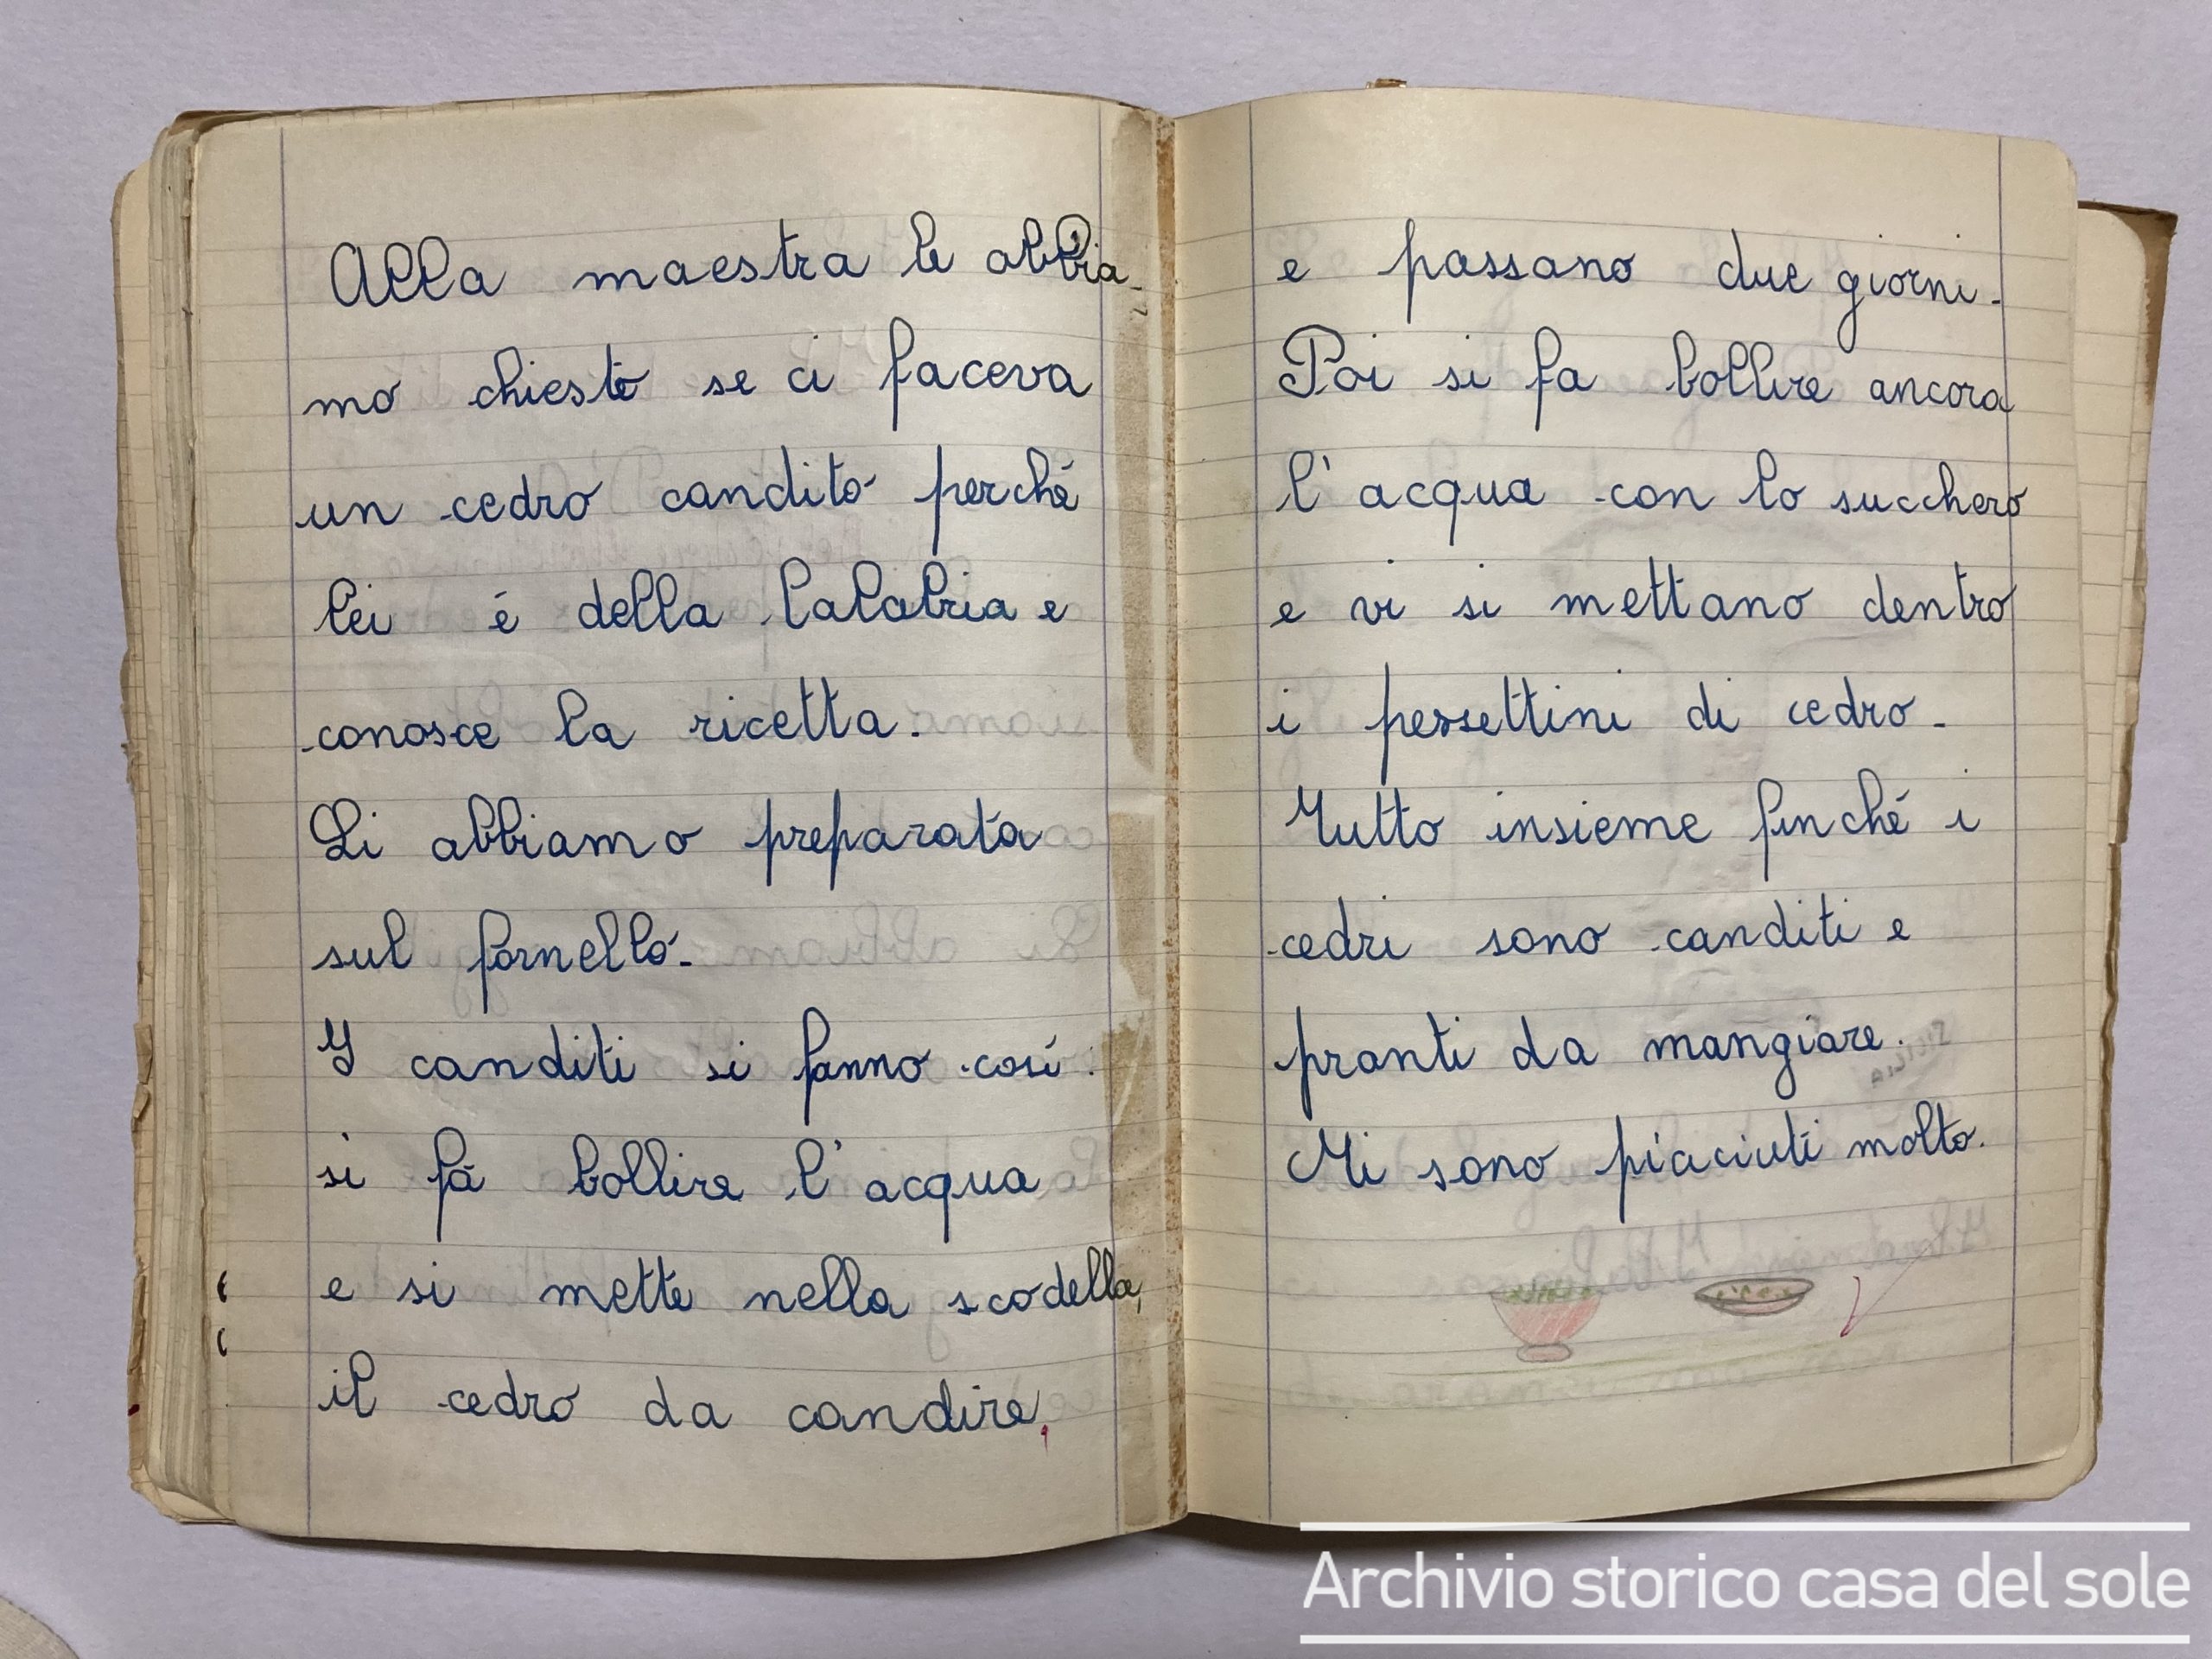 Alla maestra le abbia-
mo chiesto se ci faceva
un cedro candito perché
lei é della Calabria e
conosce la ricetta.
Li abbiamo preparata
sul fornello.
I canditi si fanno cosí:
si fá bollire l'acqua
e si mette nella scodella,
il cedro da candire,
e passano due giorni.
Poi si fa bollire ancora
l'acqua con lo succhero
e vi si mettano dentro
i pessettini di cedro.
Tutto insieme finché i
cedri sono canditi e
pronti da mangiare.
Mi sono piaciuti molto.
Archivio storico casa del sole